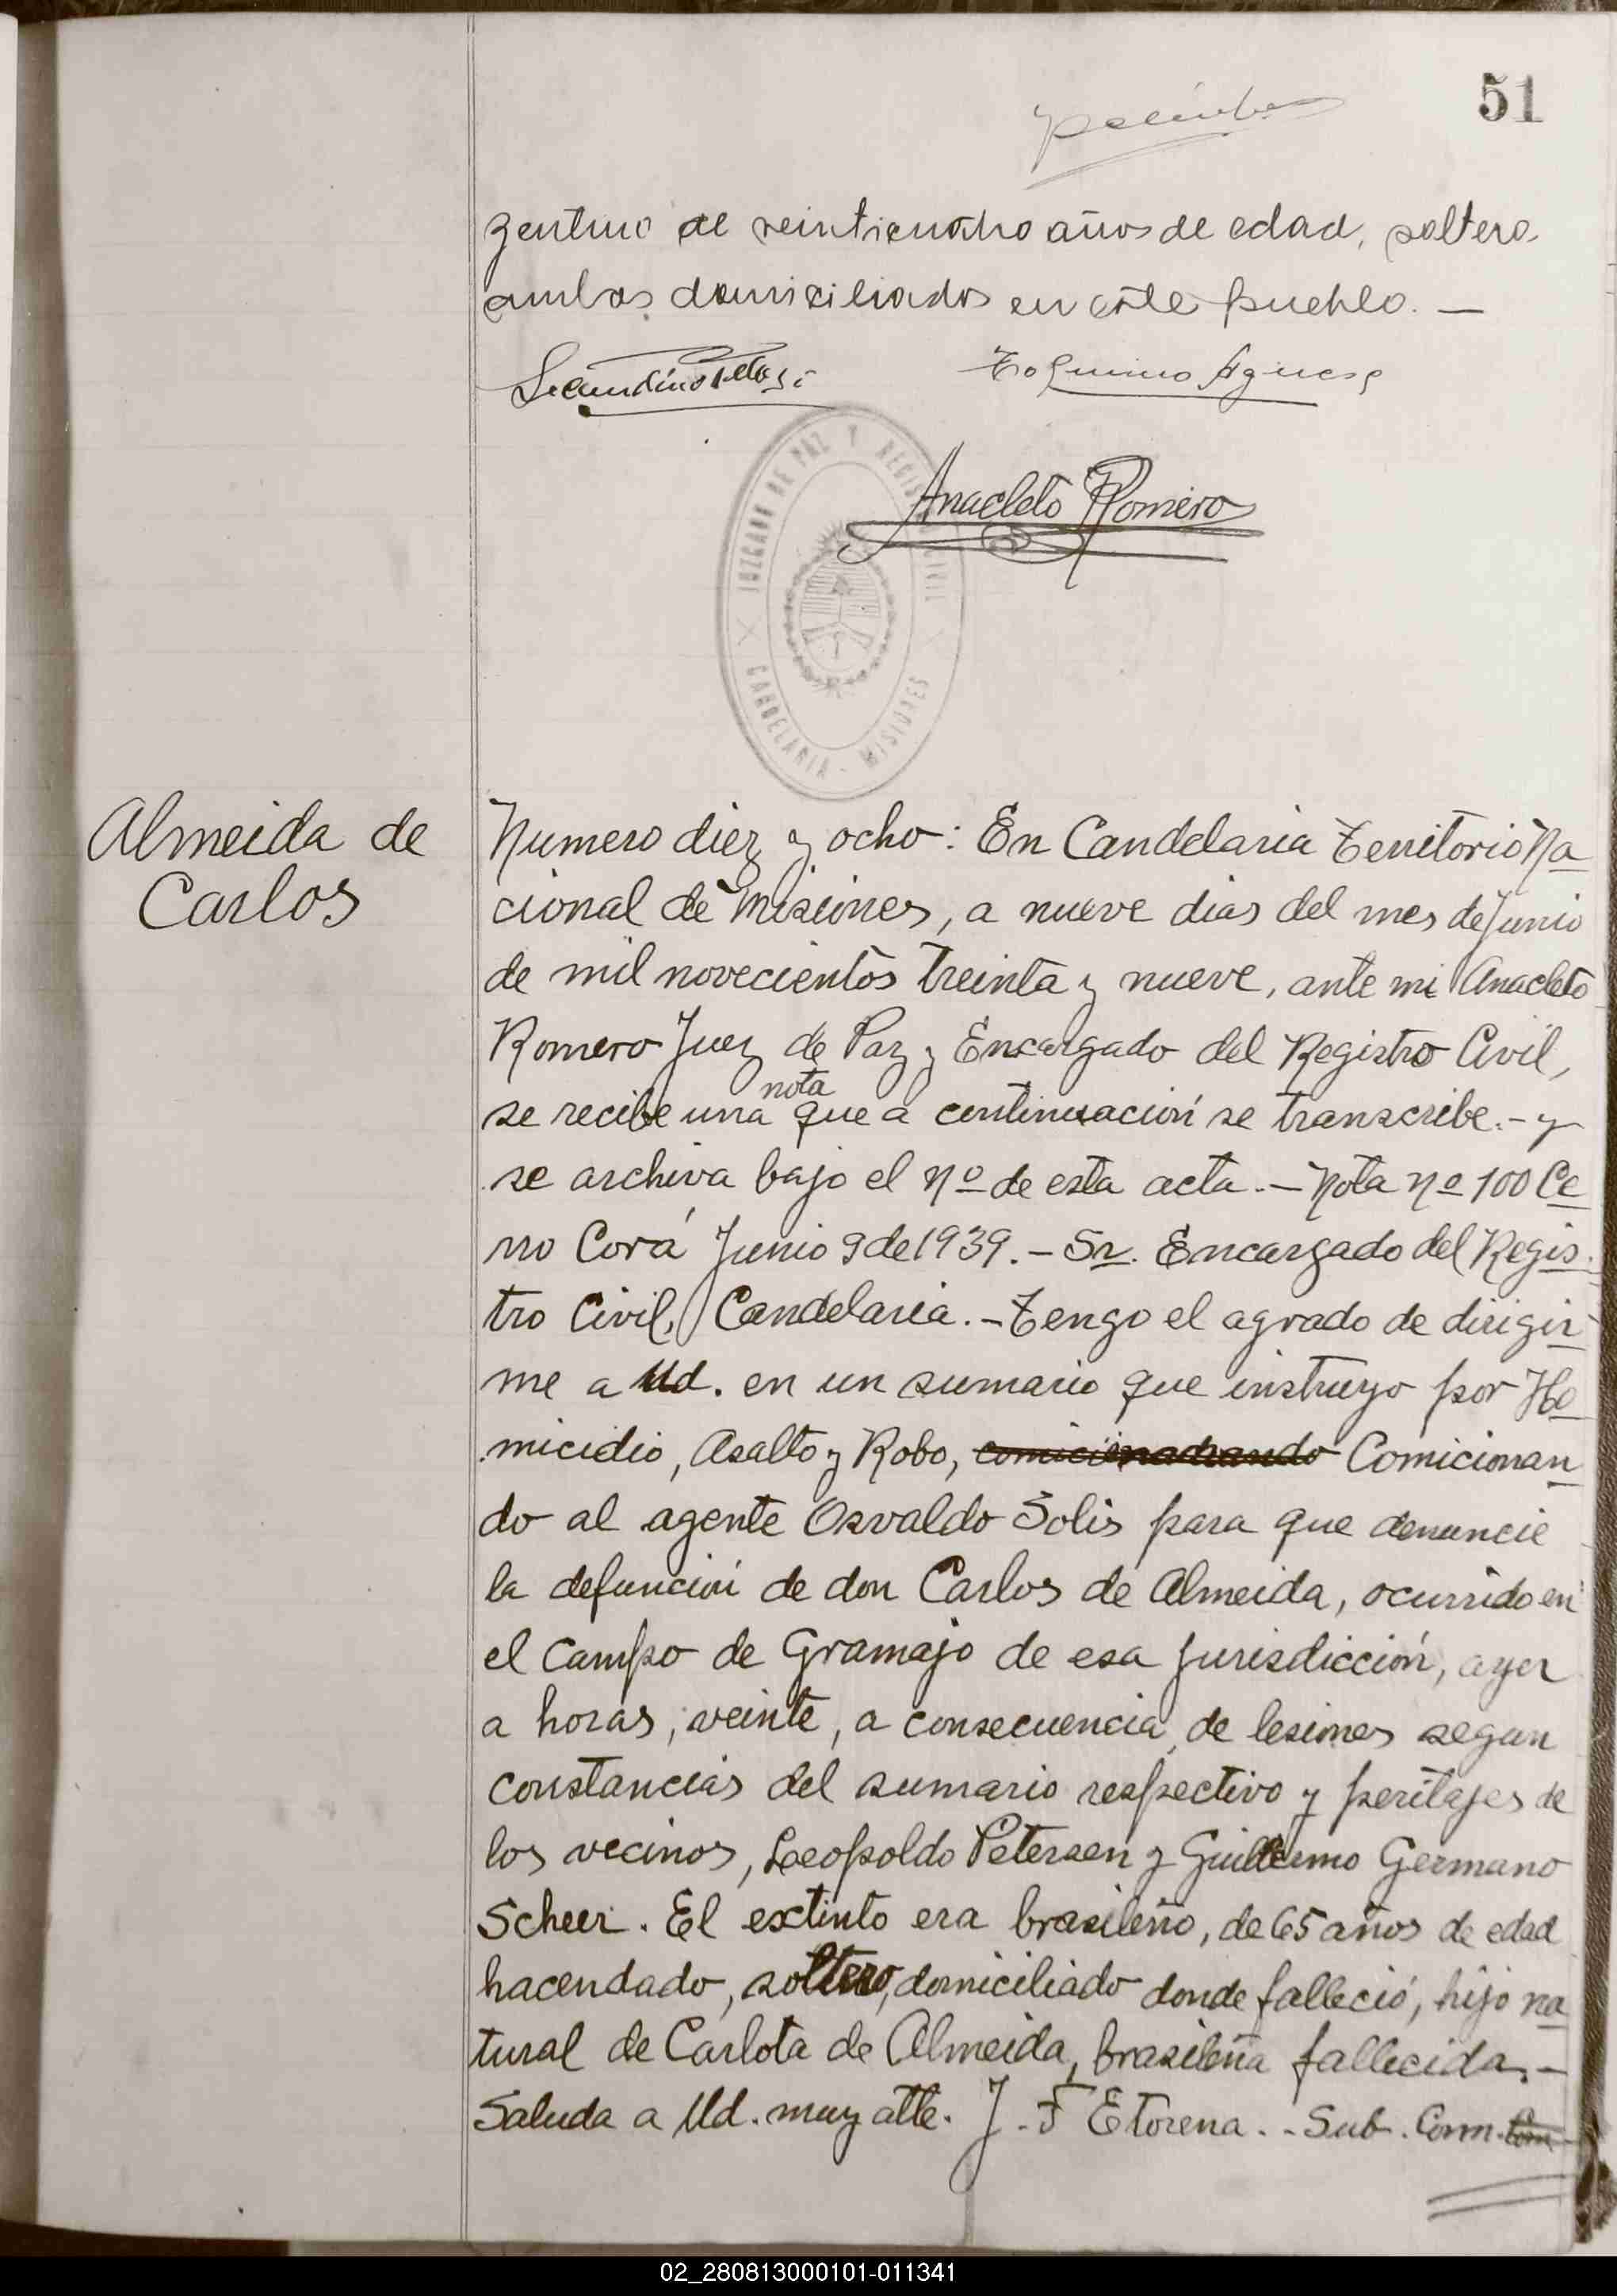 51
gentino de veinticuatro años de edad, soltero
ambos domiciliados en este pueblo. —
Secundino
Anacleto Romero
JUZGADO DE PAZ Y REGISTRO CIVIL
CANDELARIA - MISIONES
Almeida de
Carlos
Numero diez y ocho: En Candelaria Territorio Na
cional de Misiones, a nueve dias del mes de Junio
de mil novecientos treinta y nueve, ante mi Anacleto
Romero Juez de Paz y Encargado del Registro Civil,
nota
se recibe una que a continuación se transcribe.- y
se archiva bajo el Nº de esta acta.- Nota Nº 100 Ce
rro Corá Junio 9 de 1939.- Sr. Encargado del Regis
tro Civil, Candelaria.- Tengo el agrado de dirigir
me a Ud. en un sumario que instruyo por Ho
micidio, Asalto y Robo, Comicionan
do al agente Osvaldo Solis para que denuncie
la defunción de don Carlos de Almeida, ocurrido en
el Campo de Gramajo de esa jurisdicción, ayer
a horas, veinte, a consecuencia de lesiones segun
constancias del sumario respectivo y peritajes de
los vecinos, Leopoldo Petersen y Guillermo Germano
Scheer. El extinto era brasileño, de 65 años de edad
hacendado, soltero, domiciliado donde falleció, hijo na
tural de Carlota de Almeida, brasileña fallecida.-
Saluda a Ud. muy atte. J. F Etorena. - Sub. Com.
02_280813000101-011341